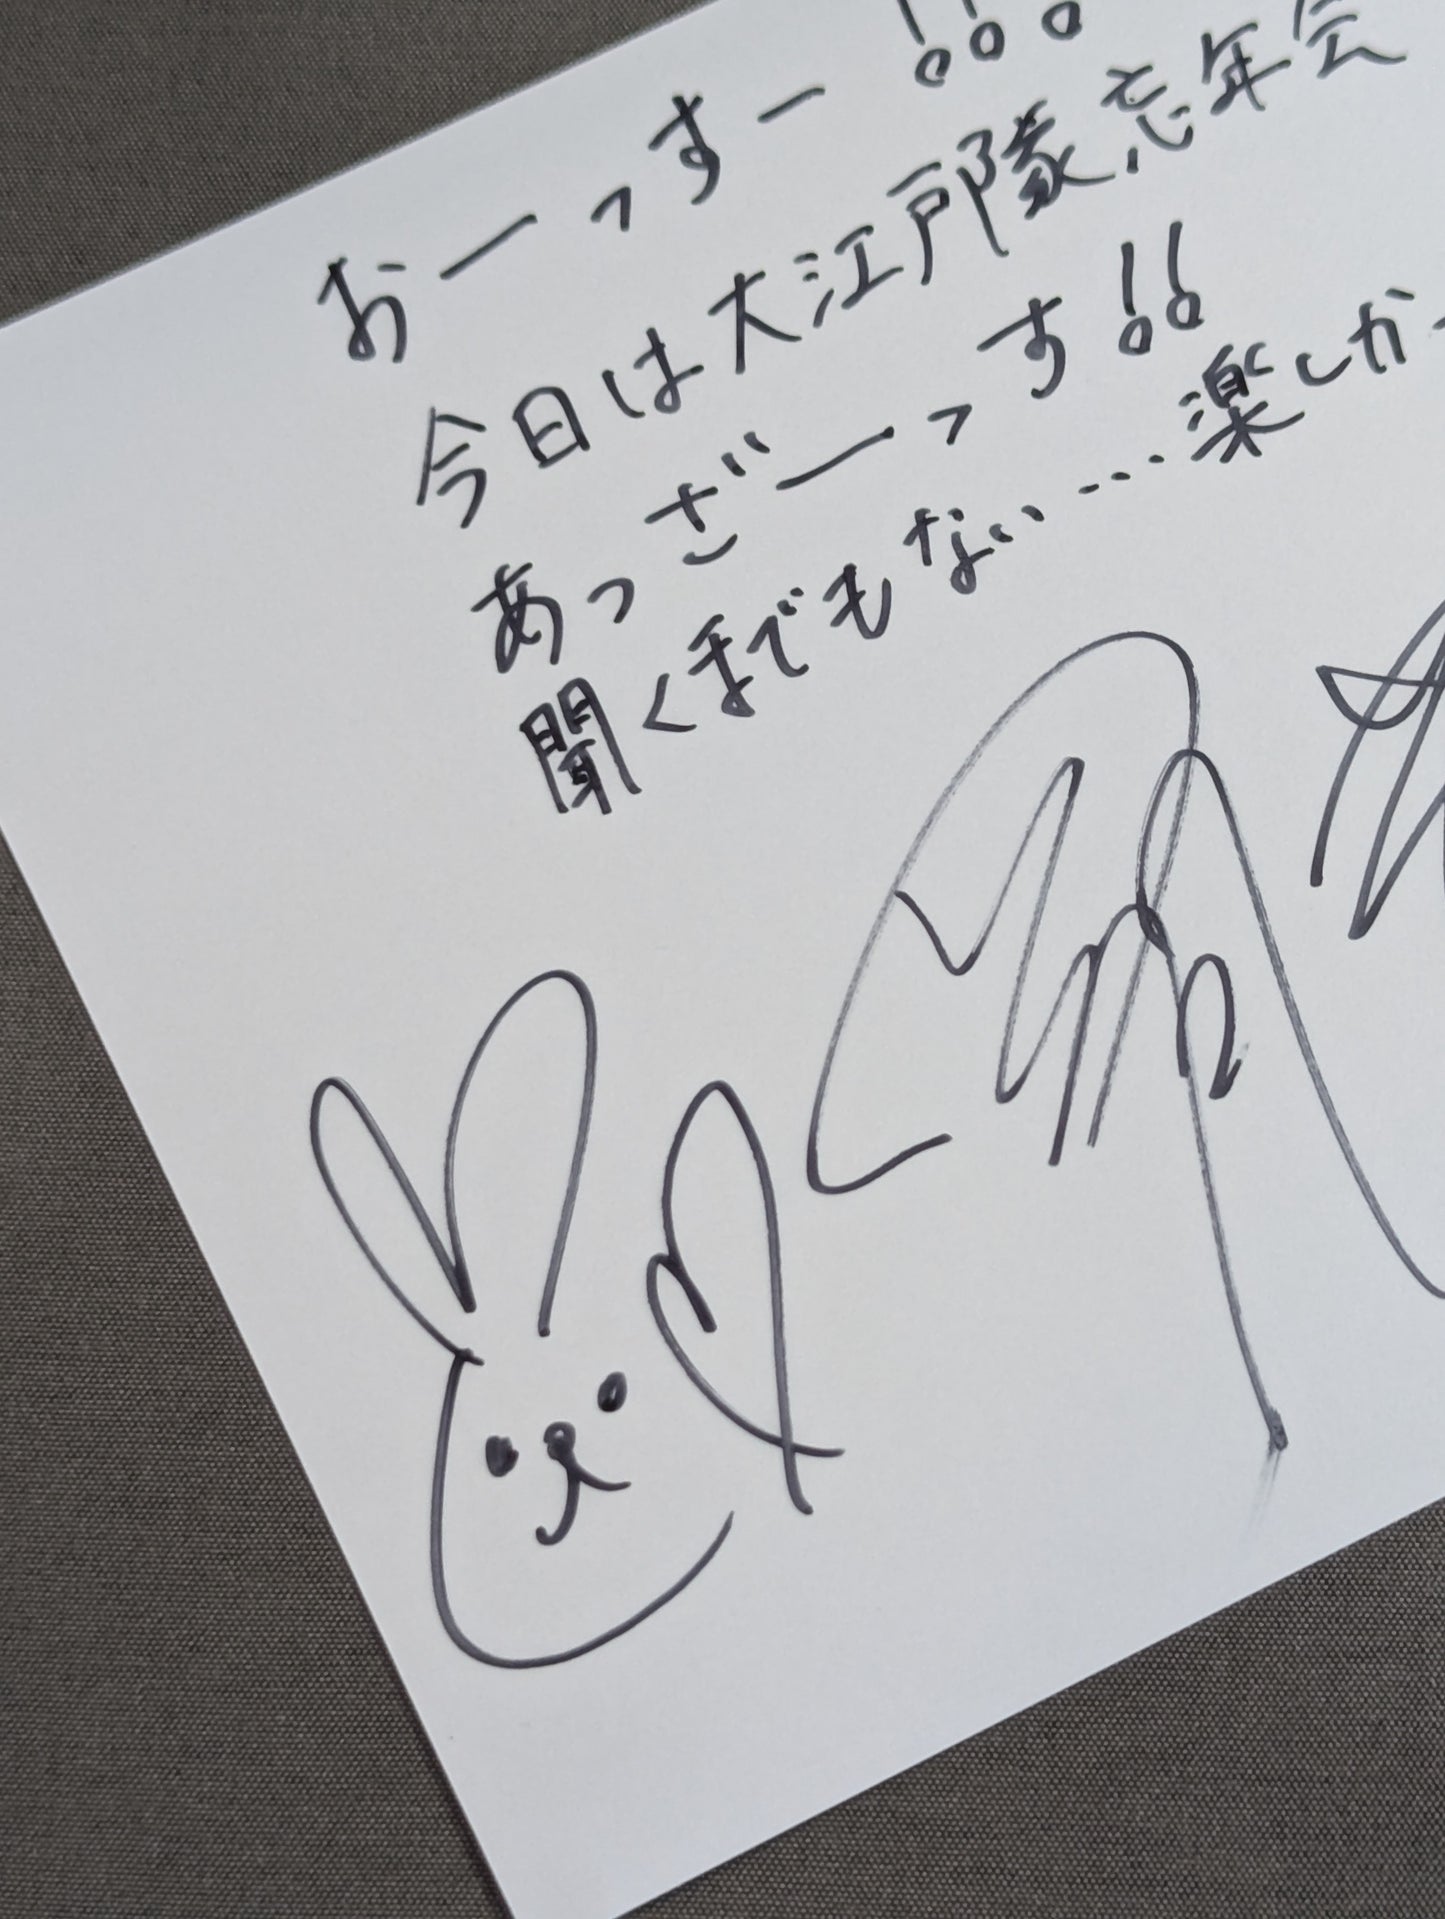 おーっすー!!!
今日は大江戸隊忘年会
あっざーっす!!
聞くまでもない…楽しか